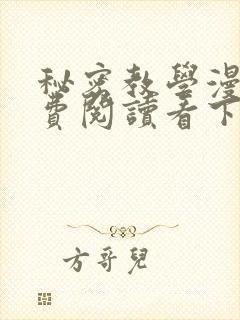 秘密教學漫
費閱讀看下
方哥兒